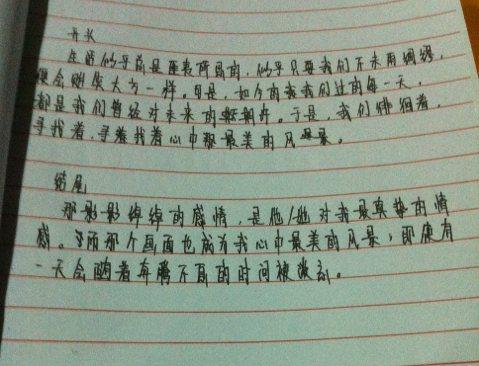 开头
在的似乎前是所的，似乎只要我们不未雨绸缪，
便会一样。可是，如今的我们过的每一天，
都是我们曾经对未来的期许。于是，我们徘徊着，
寻找着，寻着找着心中那最美的风景。
结尾
那影影绰绰的感情，是他/她对我最真挚的情
感。而那个画面也成为我心中最美的风景，即使有
一天会随着奔腾不回的时间被